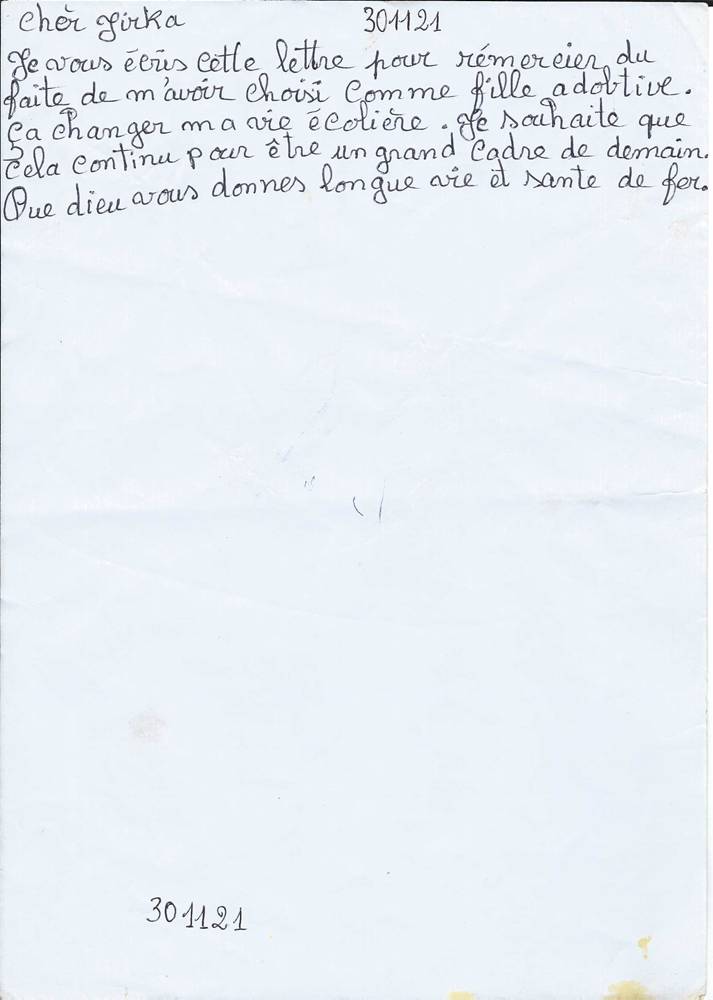 Chèr Jirka 301121
Je vous écris cette lettre pour rémercier du
faite de m'avoir choisi comme fille adobtive.
Ça changer ma vie écolière. Je souhaite que
cela continu pour être un grand cadre de demain.
Que dieu vous donnes longue vie et sante de fer.
301121